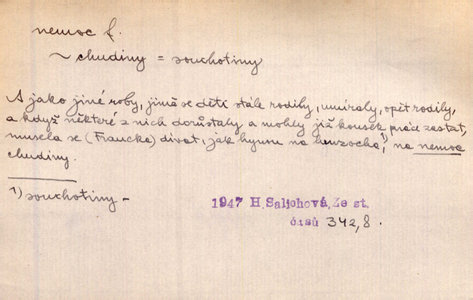 nemoc f.
~ chudiny = souchotiny
A jako jiné roby, jimž se děti stále rodily, umíraly, opět rodily,
a když některé z nich dorůstaly a mohly již kousek práce zastat,
musela se (Francka) dívat, jak hynou na 1) na nemoc
chudiny.
1) souchotiny –
1947 H. Salichová, Ze st.
časů 342,8.